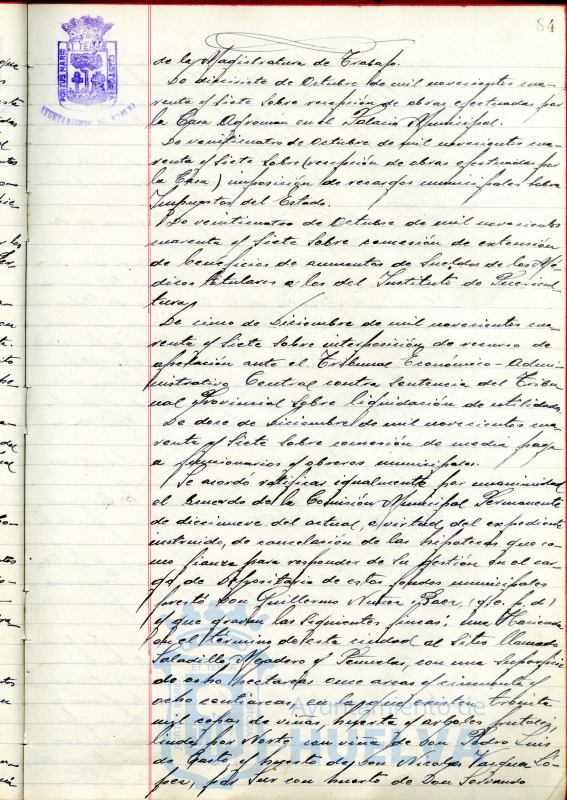 84
de la Magistratura de Trabajo.
De diecisiete de Octubre de mil novecientos cua-
renta y siete sobre recepción de obras efectuadas por
la Casa Agroman en el Palacio Municipal.
De veinticuatro de Octubre de mil novecientos cua-
renta y siete sobre (recepción de obras efectuadas por
la Casa) imposición de recargos municipales sobre
Impuestos del Estado.
De veinticuatro de Octubre de mil novecientos
cuarenta y siete sobre concesión de extensión
de beneficios de aumentos de sueldos de los Mé-
dicos titulares a los del Instituto de Puericul-
tura,
De cinco de Diciembre de mil novecientos cua-
renta y siete sobre interposición de recurso de
apelación ante el Tribunal Económico-Admi-
nistrativo Central contra sentencia del Tribu-
nal Provincial sobre liquidación de utilidades.
De doce de Diciembre de mil novecientos cua-
renta y siete sobre concesión de media paga
a funcionarios y obreros municipales.
Se acordó ratificar igualmente por unanimidad
el acuerdo de la Comisión Municipal Permanente
de diecinueve del actual, a virtud del expediente
instruido, de cancelación de las hipotecas que co-
mo fianza para responder de su gestión en el car-
go de Depositario de estos fondos municipales
prestó Don Guillermo Baer, (q. e. p. d.)
y que gravan las siguientes fincas: una Hacienda
en el término de esta ciudad al sitio llamado
Saladillo, y con una superficie
de ocho hectáreas once áreas y cincuenta y
ocho centiáreas, en la que existen treinta
mil cepas de viñas, huerta y árboles frutales,
linda por Norte con viña de Don Pedro Luis
de y huerto de Don Nicolás Vazquez Ló-
pez, por Sur con huerto de Don Servando
PORTUS MARIS ET TERRÆ CUSTODIA
AYUNTAMIENTO DE HUELVA
Ayuntamiento de
HUELVA